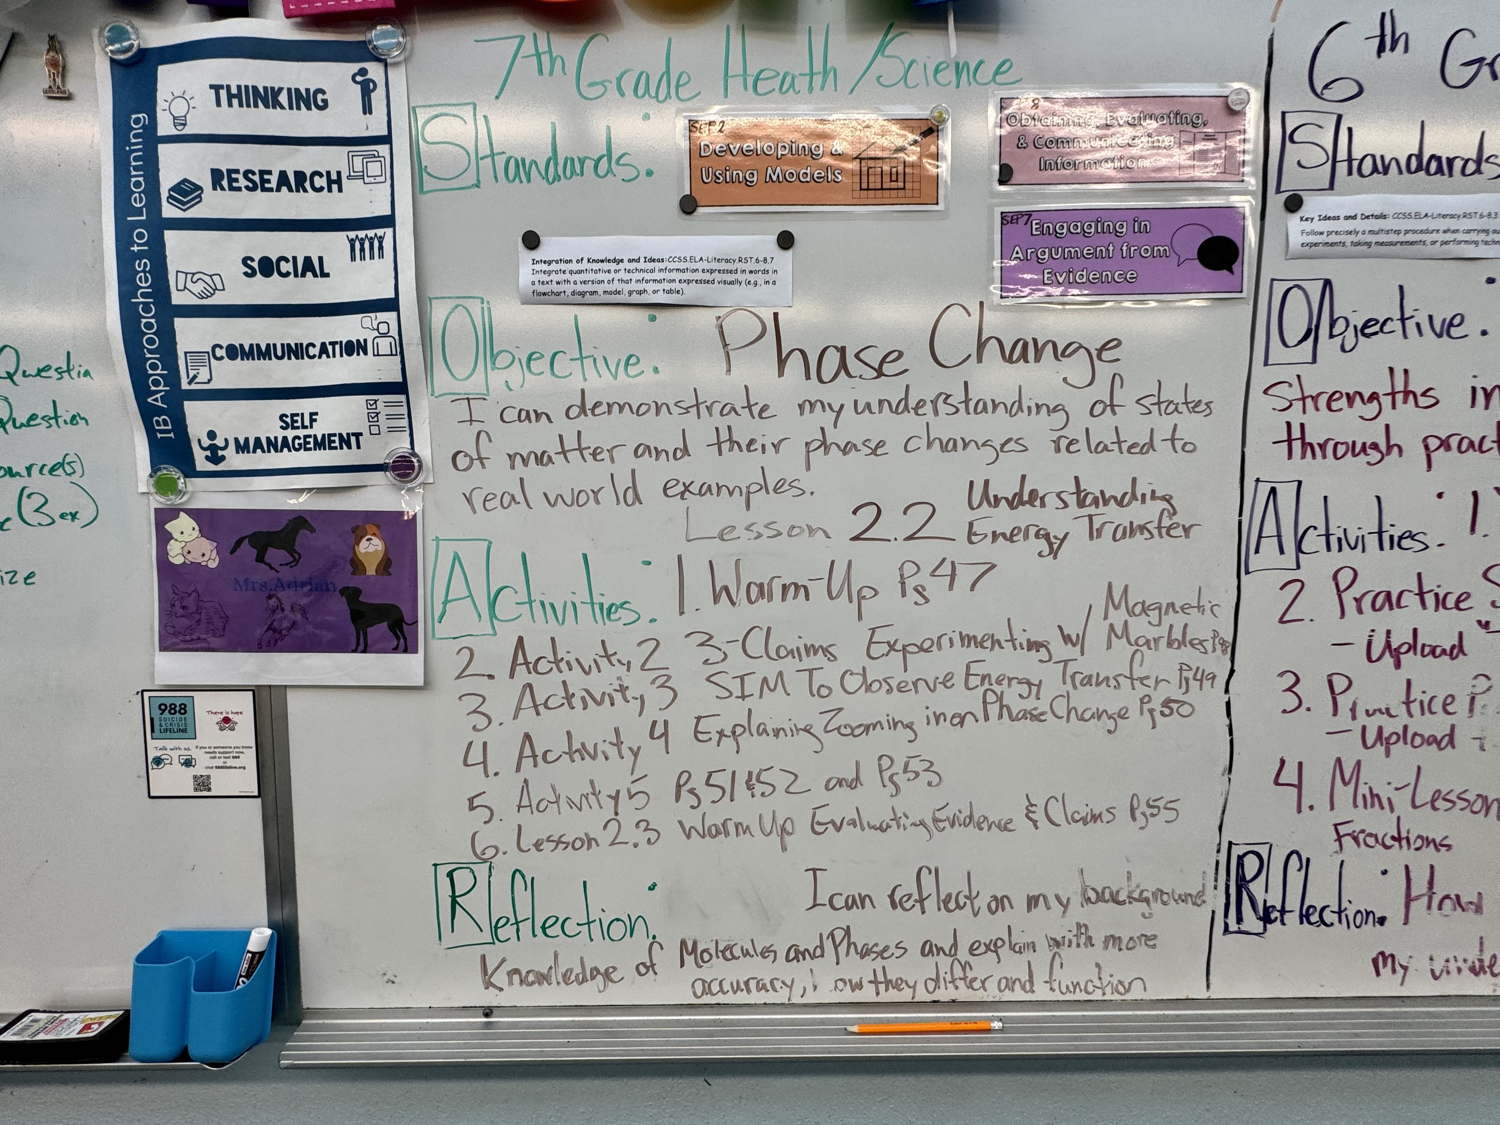 Questia
Question
ource(s)
(3 ex)
ize
IB Approaches to Learning
THINKING
RESEARCH
SOCIAL
COMMUNICATION
SELF
MANAGEMENT
Mrs. Adrian
988
SUICIDE
& CRISIS
LIFELINE
There is hope
Talk with us.
If you or someone you know
needs support now,
call or text 988
or
chat 988lifeline.org
7th Grade Heath/Science
Standards:
SEP 2
Developing &
Using Models
8
Obtaining, Evaluating,
& Communicating
Information
SEP7
Engaging in
Argument from
Evidence
Integration of Knowledge and Ideas: CCSS.ELA-Literacy.RST.6-8.7
Integrate quantitative or technical information expressed in words in
a text with a version of that information expressed visually (e.g., in a
flowchart, diagram, model, graph, or table).
Objective: Phase Change
I can demonstrate my understanding of states
of matter and their phase changes related to
real world examples.
Lesson 2.2 Understanding
Energy Transfer
Activities: 1. Warm-Up Pg 47
2. Activity 2 3-Claims Experimenting w/ Magnetic
Marbles
3. Activity 3 SIM To Observe Energy Transfer Pg 49
4. Activity 4 Explaining Zooming in on Phase Change Pg 50
5. Activity 5 Pg 51 & 52 and Pg 53
6. Lesson 2.3 Warm Up Evaluating Evidence & Claims Pg 55
Reflection: I can reflect on my background
Knowledge of Molecules and Phases and explain with more
accuracy, how they differ and function
6th Gr
Standards
Key Ideas and Details: CCSS.ELA-Literacy.RST.6-8.3
Follow precisely a multistep procedure when carrying ou
experiments, taking measurements, or performing techn
Objective:
Strengths in
through pract
Activities: 1.
2. Practice S
- Upload
3. Practice P
- Upload
4. Mini-Lesson
Fractions
Reflection: How
my unde